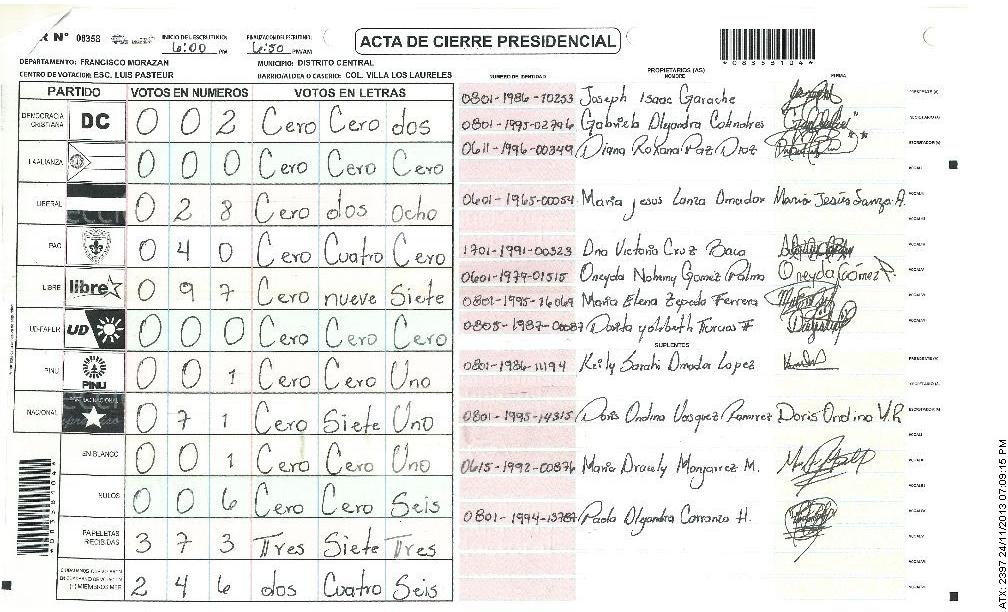 R N° 08358
INICIO DEL ESCRUTINIO: 6:00 PM
FINALIZACION DEL ESCRUTINIO: 6:50 PM/AM
ACTA DE CIERRE PRESIDENCIAL
*08358104*
DEPARTAMENTO: FRANCISCO MORAZAN
MUNICIPIO: DISTRITO CENTRAL
CENTRO DE VOTACION: ESC. LUIS PASTEUR
BARRIO/ALDEA O CASERIO: COL. VILLA LOS LAURELES
PARTIDO VOTOS EN NUMEROS VOTOS EN LETRAS
DEMOCRACIA CRISTIANA DC 0 0 2 Cero Cero dos
ALIANZA 0 0 0 Cero Cero Cero
LIBERAL 0 2 8 Cero dos ocho
PAC 0 4 0 Cero Cuatro Cero
LIBRE libre 0 9 7 Cero nueve Siete
UD-FAPER UD 0 0 0 Cero Cero Cero
PINU PINU 0 0 1 Cero Cero Uno
NACIONAL 0 7 1 Cero Siete Uno
EN BLANCO 0 0 1 Cero Cero Uno
NULOS 0 0 6 Cero Cero Seis
PAPELETAS RECIBIDAS 3 7 3 Tres Siete Tres
2 4 6 dos Cuatro Seis
NUMERO DE IDENTIDAD
PROPIETARIOS (AS)
NOMBRE
FIRMA
0801-1986-10253 Joseph Isaac Garache
0801-1995-02796 Gabriela Alejandra Colindres
0611-1996-00349 Diana Roxana Paz Diaz
0601-1965-00054 Maria Jesus Lanza Amador Maria Jesús Lanza A.
1701-1991-00323 Ana Victoria Cruz Baca
0601-1979-01515 Oneyda Nohemy Gomez Palma Oneyda Gómez P.
0801-1995-16069 Maria Elena Zepeda Ferrera
0805-1987-00087
SUPLENTES
0801-1986-11194 Keily Sarahi Amador Lopez
0801-1995-14315 Doris Ondina Vasquez Ramirez Doris Ondina V.R
0615-1992-00876 Maria Aracely Monjarrez M.
0801-1994-13787 Paola Alejandra Carranza H.
*08358104*
ATX: 2397 24/11/2013 07:09:15 PM